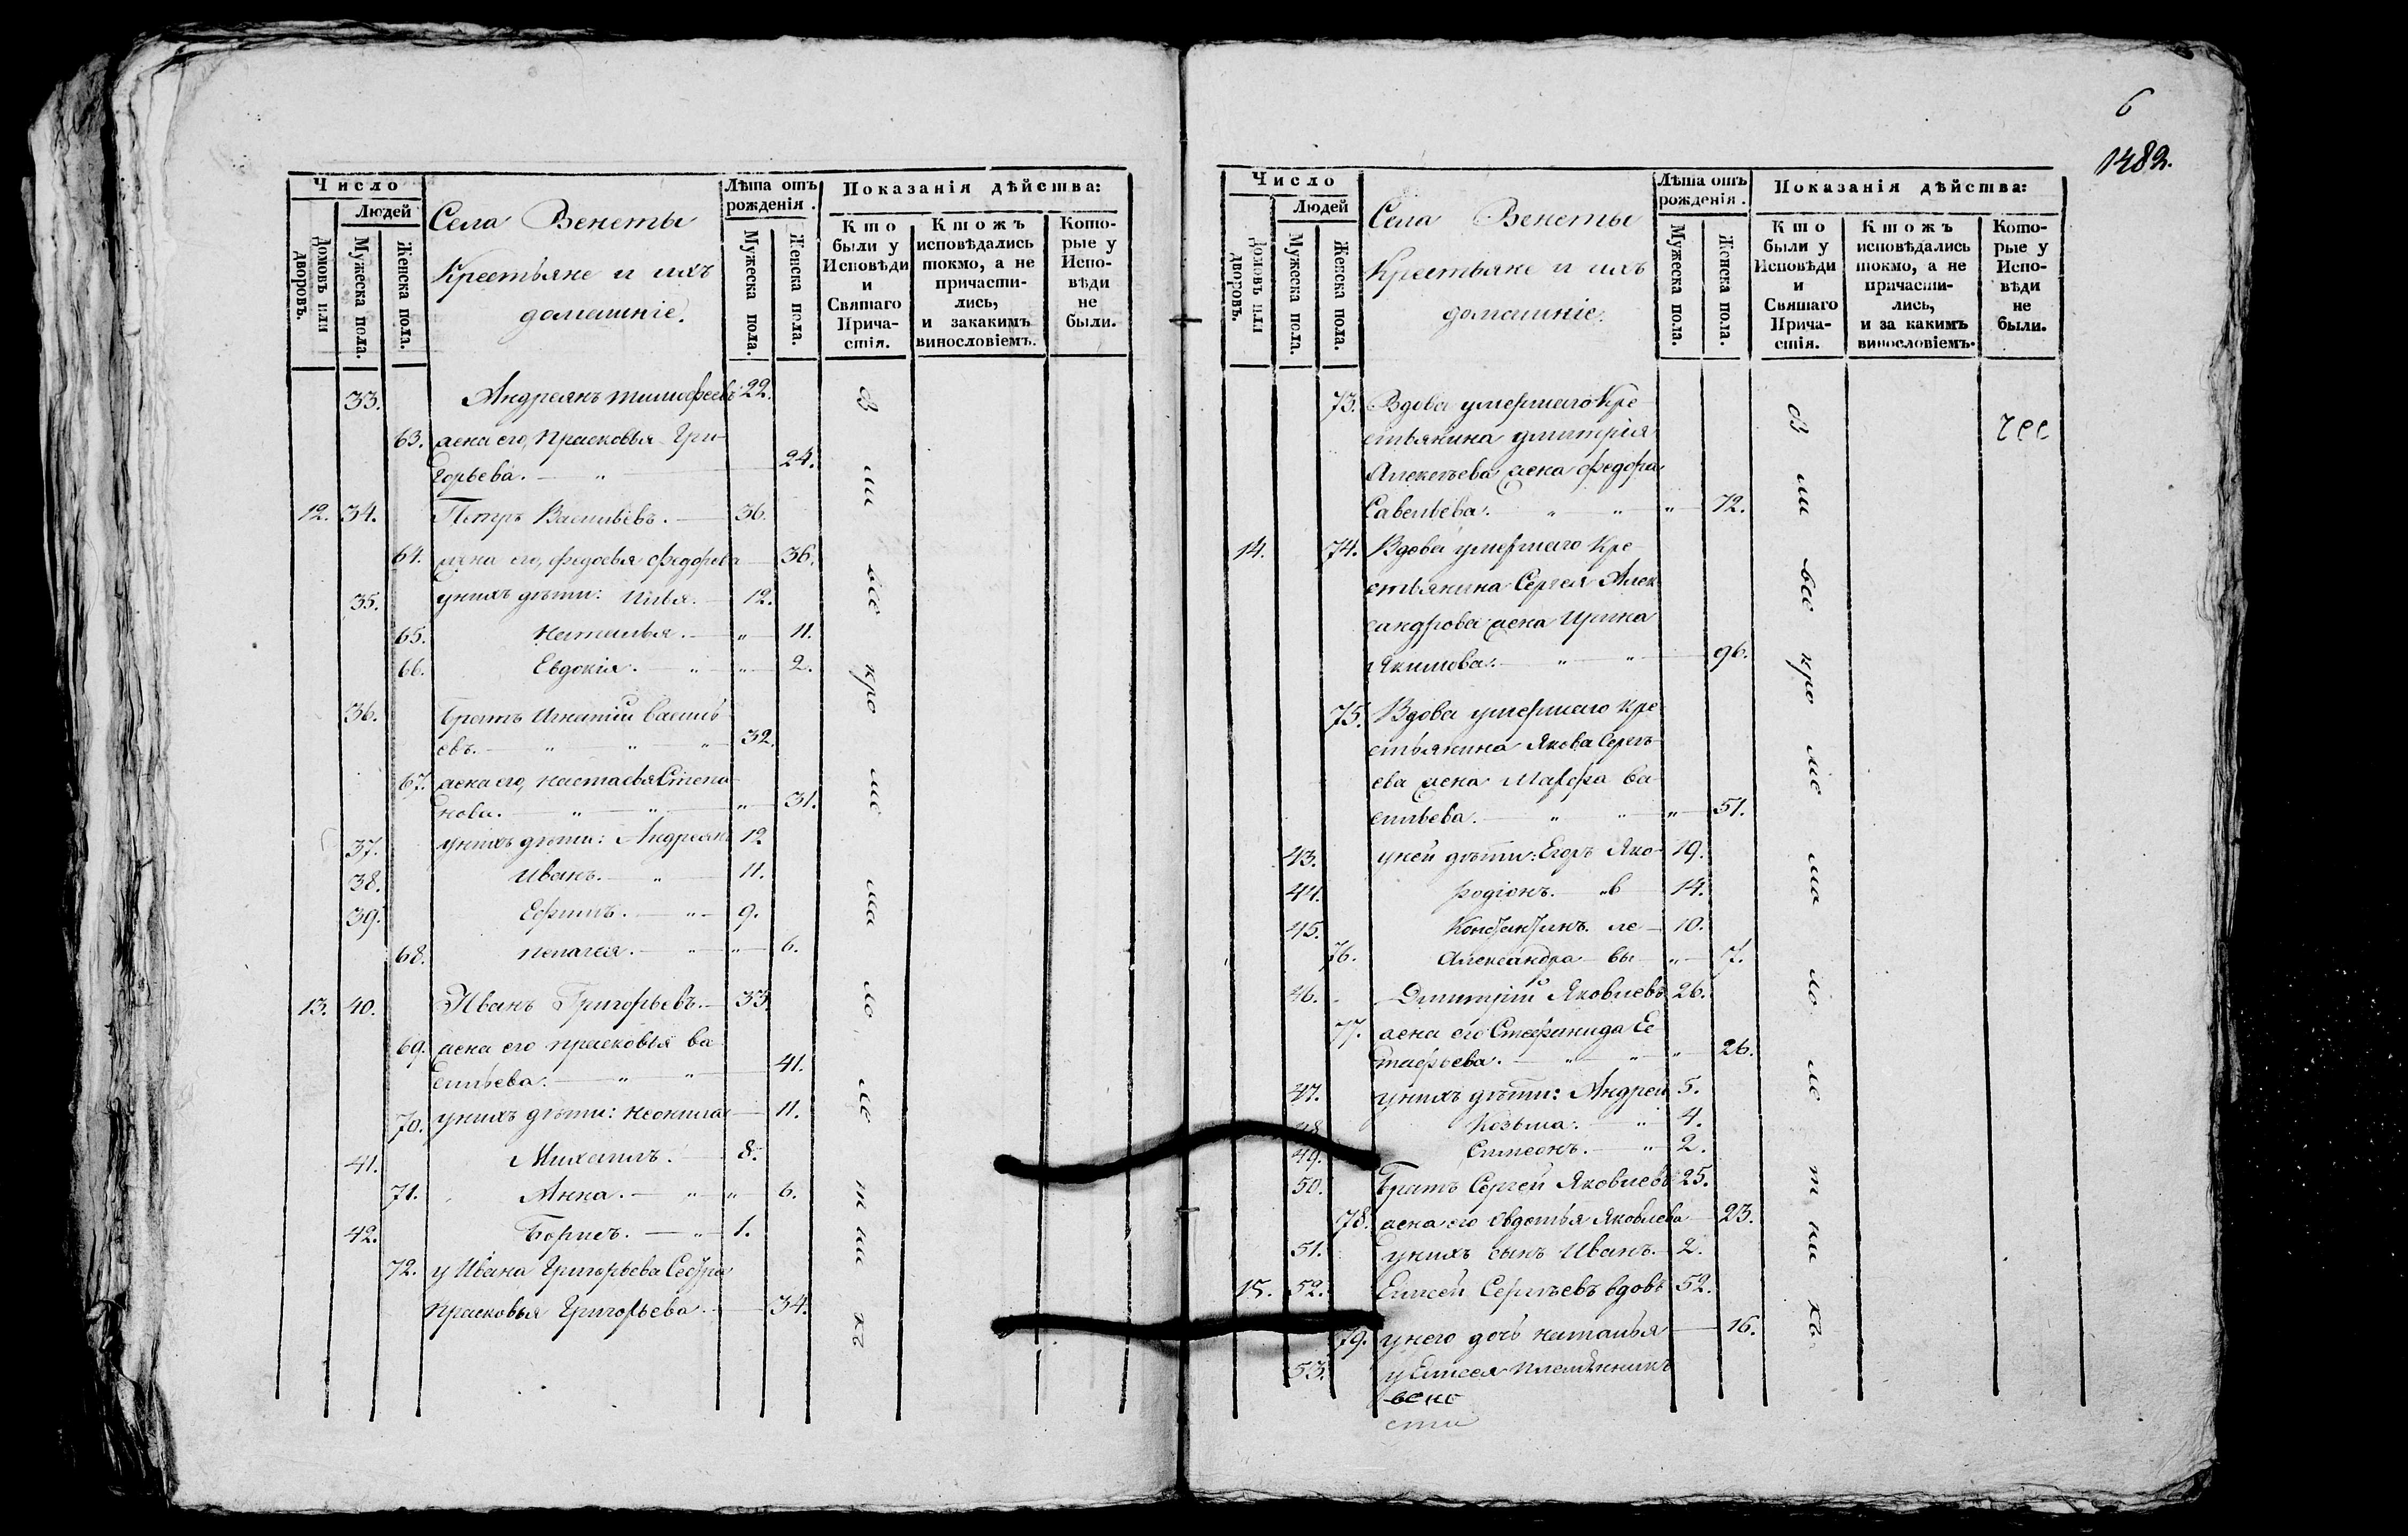 6
1482.
Число
Людей
Домовъ или дворовъ.
Мужеска пола.
Женска пола.
Села Венеты
Крестьяне и ихъ
домашніе.
Лѣта отъ рожденія.
Мужеска пола.
Женска пола.
Показанія дѣйства:
Кто были у Исповѣди и Святаго Причастія.
Ктожъ исповѣдались токмо, а не причастились, и закакимъ винословіемъ.
Которые у Исповѣди не были.
33. Андреянъ тимофеевъ 22.
63. жена его, Прасковья Гри-
горьева. 24.
12. 34. Петръ Васильевъ. 36.
64. жена его, федосья федорова 36.
35. унихъ дѣти: Илья. 12.
65. Наталья. 11.
66. Евдокія. 2.
36. Братъ Игнатій василь
евъ. 32.
67. жена его, настасья Степа-
нова. 31.
37. унихъ дѣти: Андреянъ 12
38. Иванъ. 11.
39. Ефимъ. 9.
68. пелагея. 6.
13. 40. Иванъ Григорьевъ. 33.
69. жена его прасковья ва
сильева. 41.
70. унихъ дѣти: неонила 11.
41. Михаилъ. 8.
71. Анна. 6.
42. Борисъ. 1.
72. у Ивана Григорьева Сестра
Прасковья Григорьева. 34.
Число
Людей
Домовъ или дворовъ.
Мужеска пола.
Женска пола.
Села Венеты
Крестьяне и ихъ
домашніе.
Лѣта отъ рожденія.
Мужеска пола.
Женска пола.
Показанія дѣйства:
Кто были у Исповѣди и Святаго Причастія.
Ктожъ исповѣдались токмо, а не причастились, и за какимъ винословіемъ.
Которые у Исповѣди не были.
73. Вдова умершаго Кре-
стьянина дмитрія
Алексѣева жена федора
Савельева. 72.
14. 74. Вдова умершаго Кре-
стьянина Сергея Алек-
сандрова жена Ирина
Якимова. 96.
75. Вдова умершаго кре-
стьянина Якова Сергѣ-
ева жена Марфа ва-
сильева. 51.
43. уней дѣти: Егоръ Яко- 19.
44. родіонъ. в 14.
45. Константинъ. ле 10.
76. Александра вы 7.
46. Дмитрій Яковлевъ 26.
77. жена его Стефанида Ев
стафьева. 26.
47. унихъ дѣти: Андрей 5.
48. Козьма. 4.
49. Симеонъ. 2.
50. Братъ Сергей Яковлевъ 25.
78. жена его Овдотья Яковлева 23.
51. унихъ сынъ Иванъ. 2.
15. 52. Елисей Сергѣевъ вдовъ 52.
79. унего дочь наталья 16.
53. у Елисея племянникъ